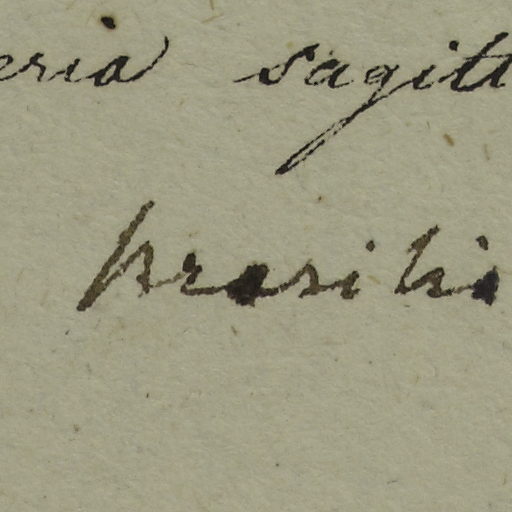 eria sagitt
brasilia